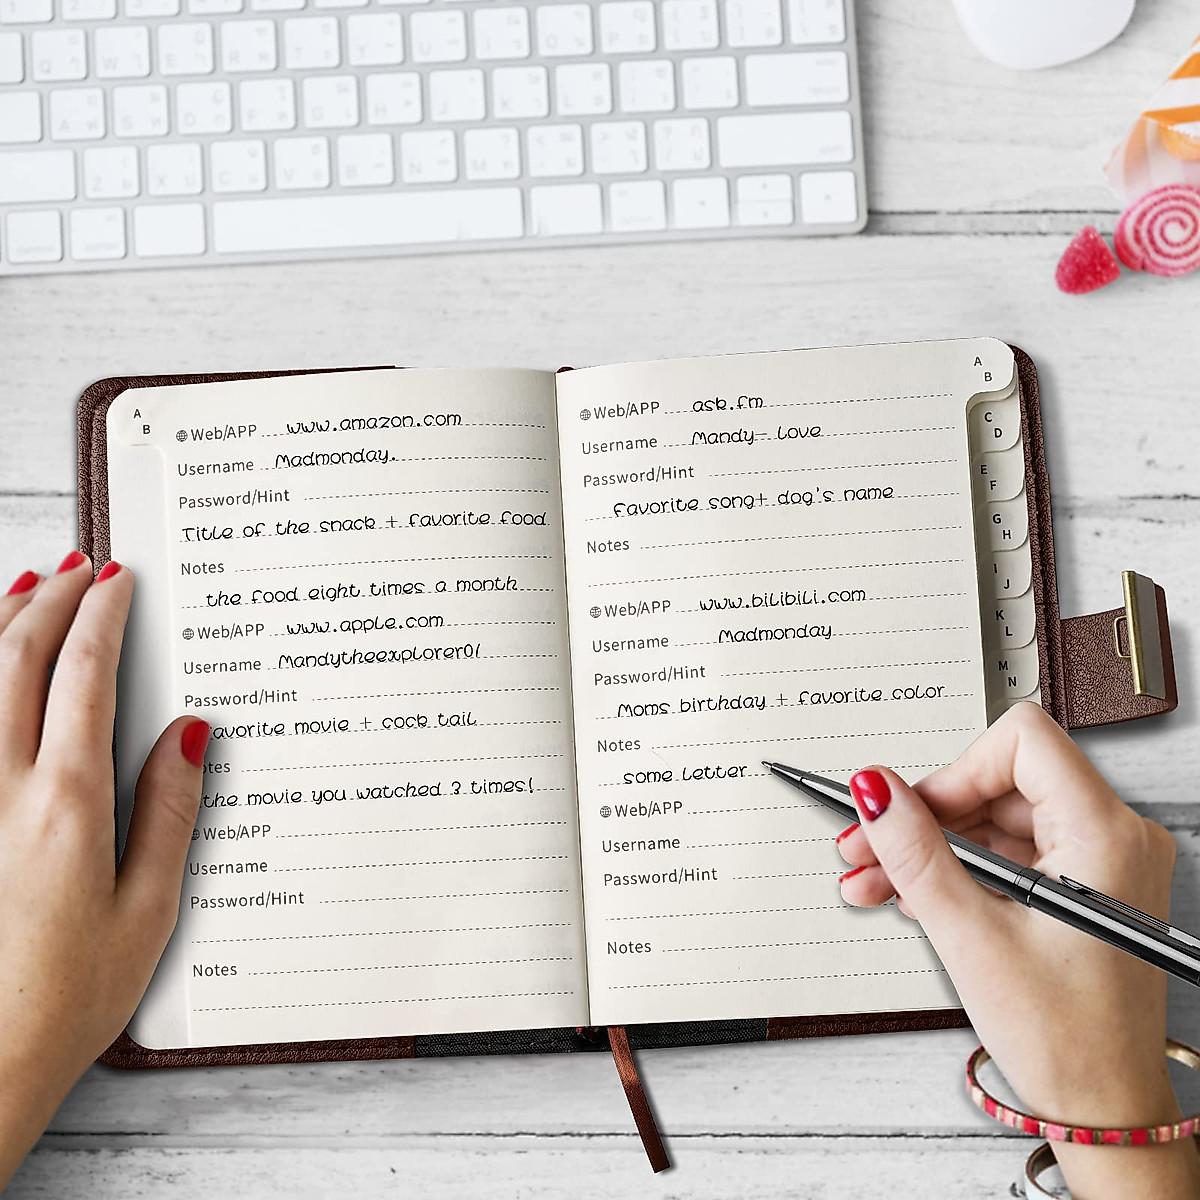 A
B
Web/APP www.amazon.com
Username Madmonday.
Password/Hint
Title of the snack + favorite food
Notes
the food eight times a month
Web/APP www.apple.com
Username Mandytheexplorer01
Password/Hint
favorite movie + cock tail
Notes
the movie you watched 3 times!
Web/APP
Username
Password/Hint
Notes
Web/APP ask.fm
Username Mandy- Love
Password/Hint
favorite song+ dog's name
Notes
Web/APP www.bilibili.com
Username Madmonday
Password/Hint
Moms birthday + favorite color
Notes
some letter
Web/APP
Username
Password/Hint
Notes
A
B
C
D
E
F
G
H
I
J
K
L
M
N